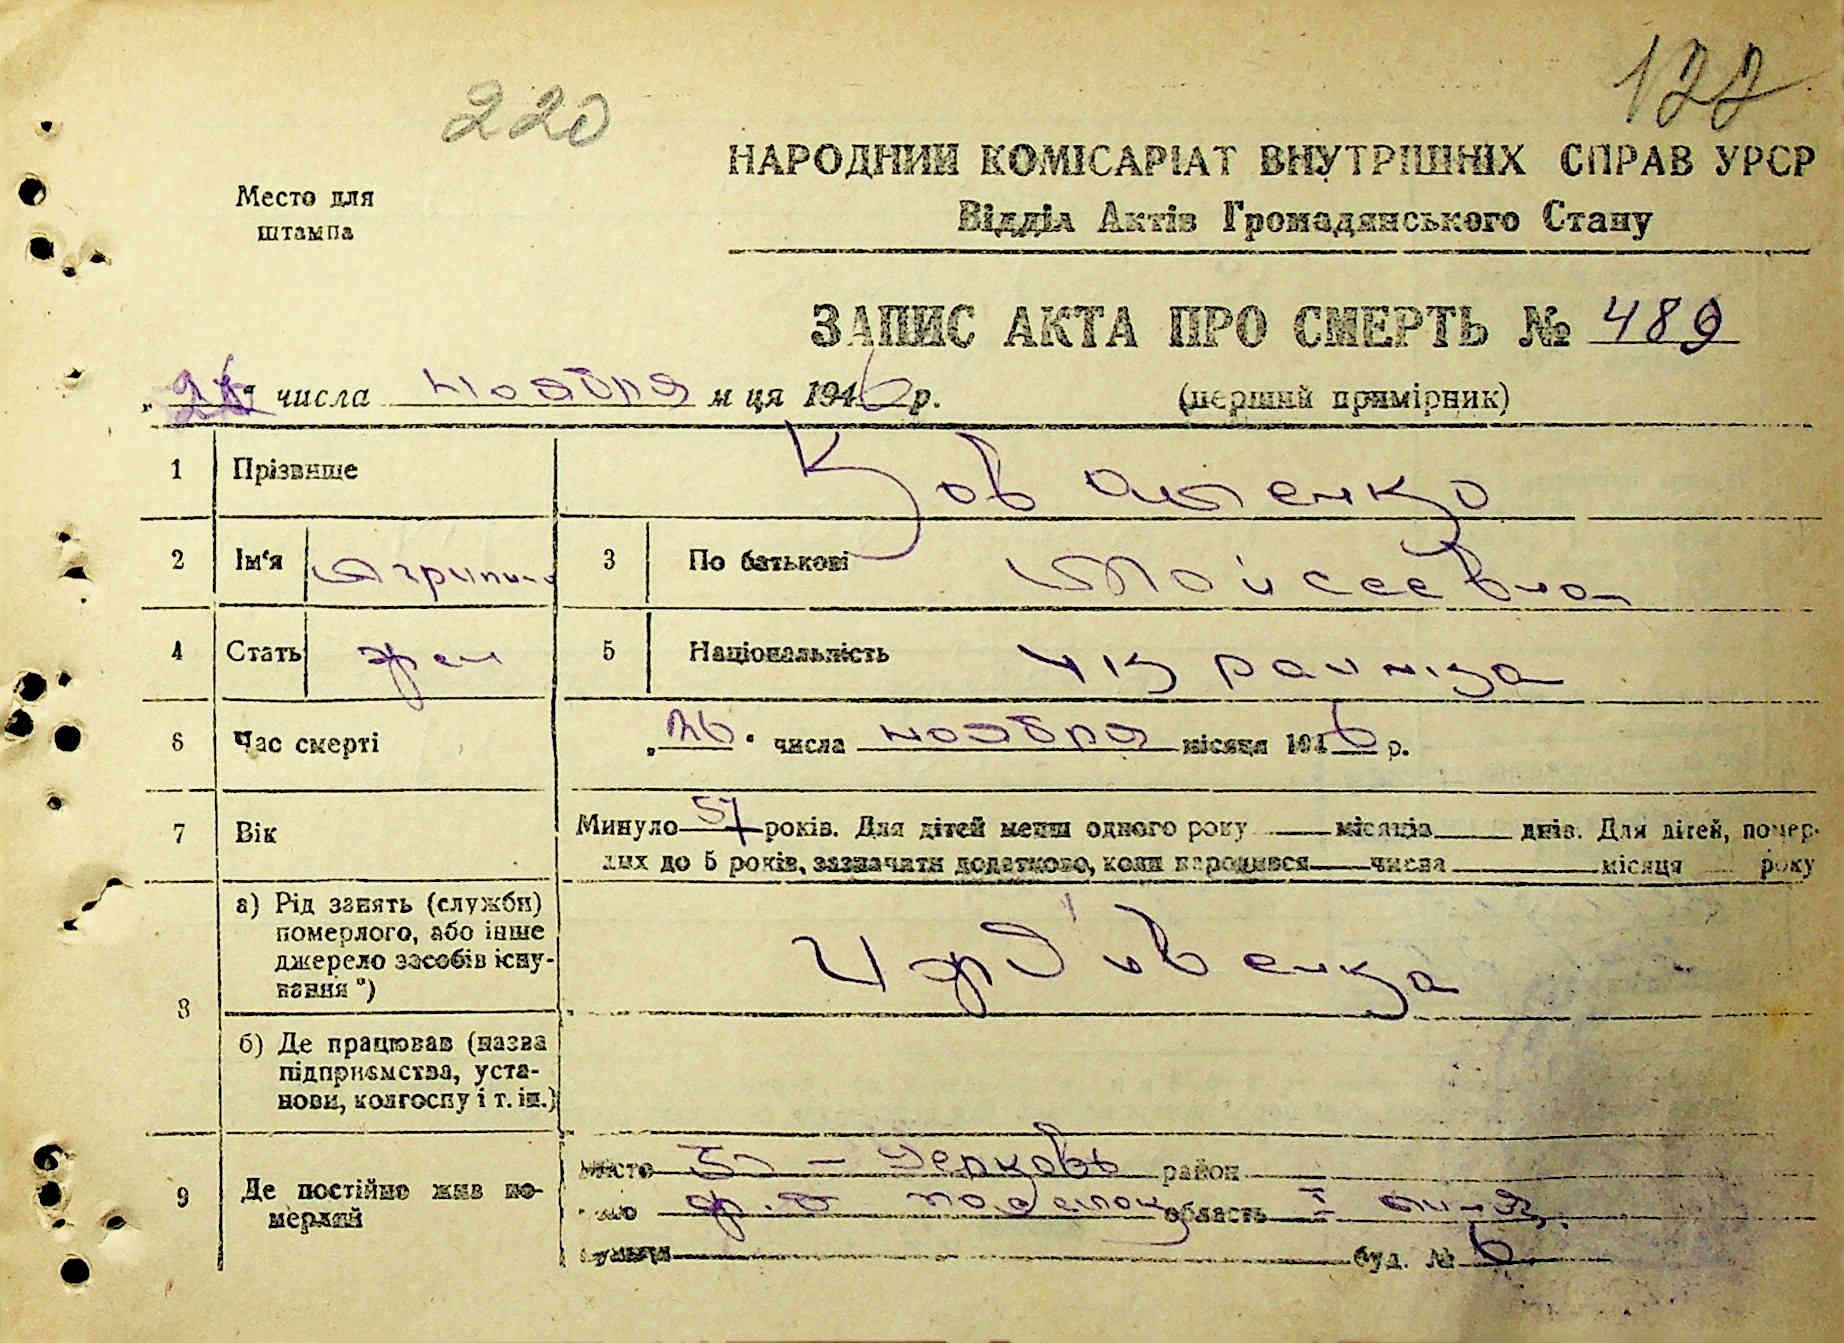 220
122
Место для
штампа
НАРОДНИЙ КОМІСАРІАТ ВНУТРІШНІХ СПРАВ УРСР
Відділ Актів Громадянського Стану
ЗАПИС АКТА ПРО СМЕРТЬ № 489
числа ноября м ця 1946 р. (перший примірник)
1 Прізвище Коваленко
2 Ім'я Агрипина 3 По батькові Мойсеевна
4 Стать жен 5 Національність украинка
6 Час смерті „26" числа ноября місяця 1946 р.
7 Вік Минуло 57 років. Для дітей менш одного року місяців днів. Для дітей, помер-
лих до 5 років, зазначати додатково, коли народився числа місяця року
8 а) Рід занять (служби)
померлого, або інше
джерело засобів існу-
вання *) Иждивенка
б) Де працював (назва
підприємства, уста-
нови, колгоспу і т. ін.)
9 Де постійно жив по-
мерлий
місто Б – Церковь район
поселок область I
вулиця буд. № 6